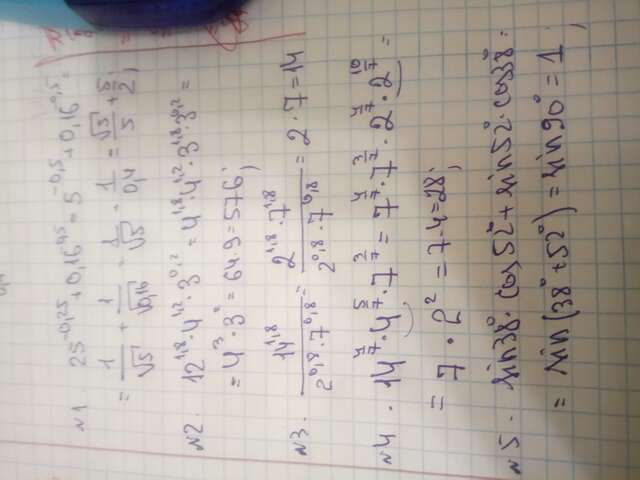 №1 25^{-0,25} + 0,16^{0,5} = 5^{-0,5} + 0,16^{0,5} =
= \frac{1}{\sqrt{5}} + \frac{1}{\sqrt{0,16}} = \frac{1}{\sqrt{5}} + \frac{1}{0,4} = \frac{\sqrt{5}}{5} + \frac{5}{2};
№2. 12^{1,8} · 4^{1,2} · 3^{0,2} = 4^{1,8} · 4^{1,2} · 3^{1,8} · 3^{0,2} =
= 4^3 · 3^2 = 64 · 9 = 576;
№3. \frac{14^{1,8}}{2^{0,8} · 7^{0,8}} = \frac{2^{1,8} · 7^{1,8}}{2^{0,8} · 7^{0,8}} = 2 · 7 = 14
№4. 14^{\frac{4}{7}} · 4^{\frac{5}{7}} · 7^{\frac{3}{7}} = 7^{\frac{4}{7}} · 7^{\frac{3}{7}} · 2^{\frac{4}{7}} · 2^{\frac{10}{7}} =
= 7 · 2^2 = 7 · 4 = 28;
№5. sin38° · cos52° + sin52° · cos38° =
= sin(38° + 52°) = sin90° = 1